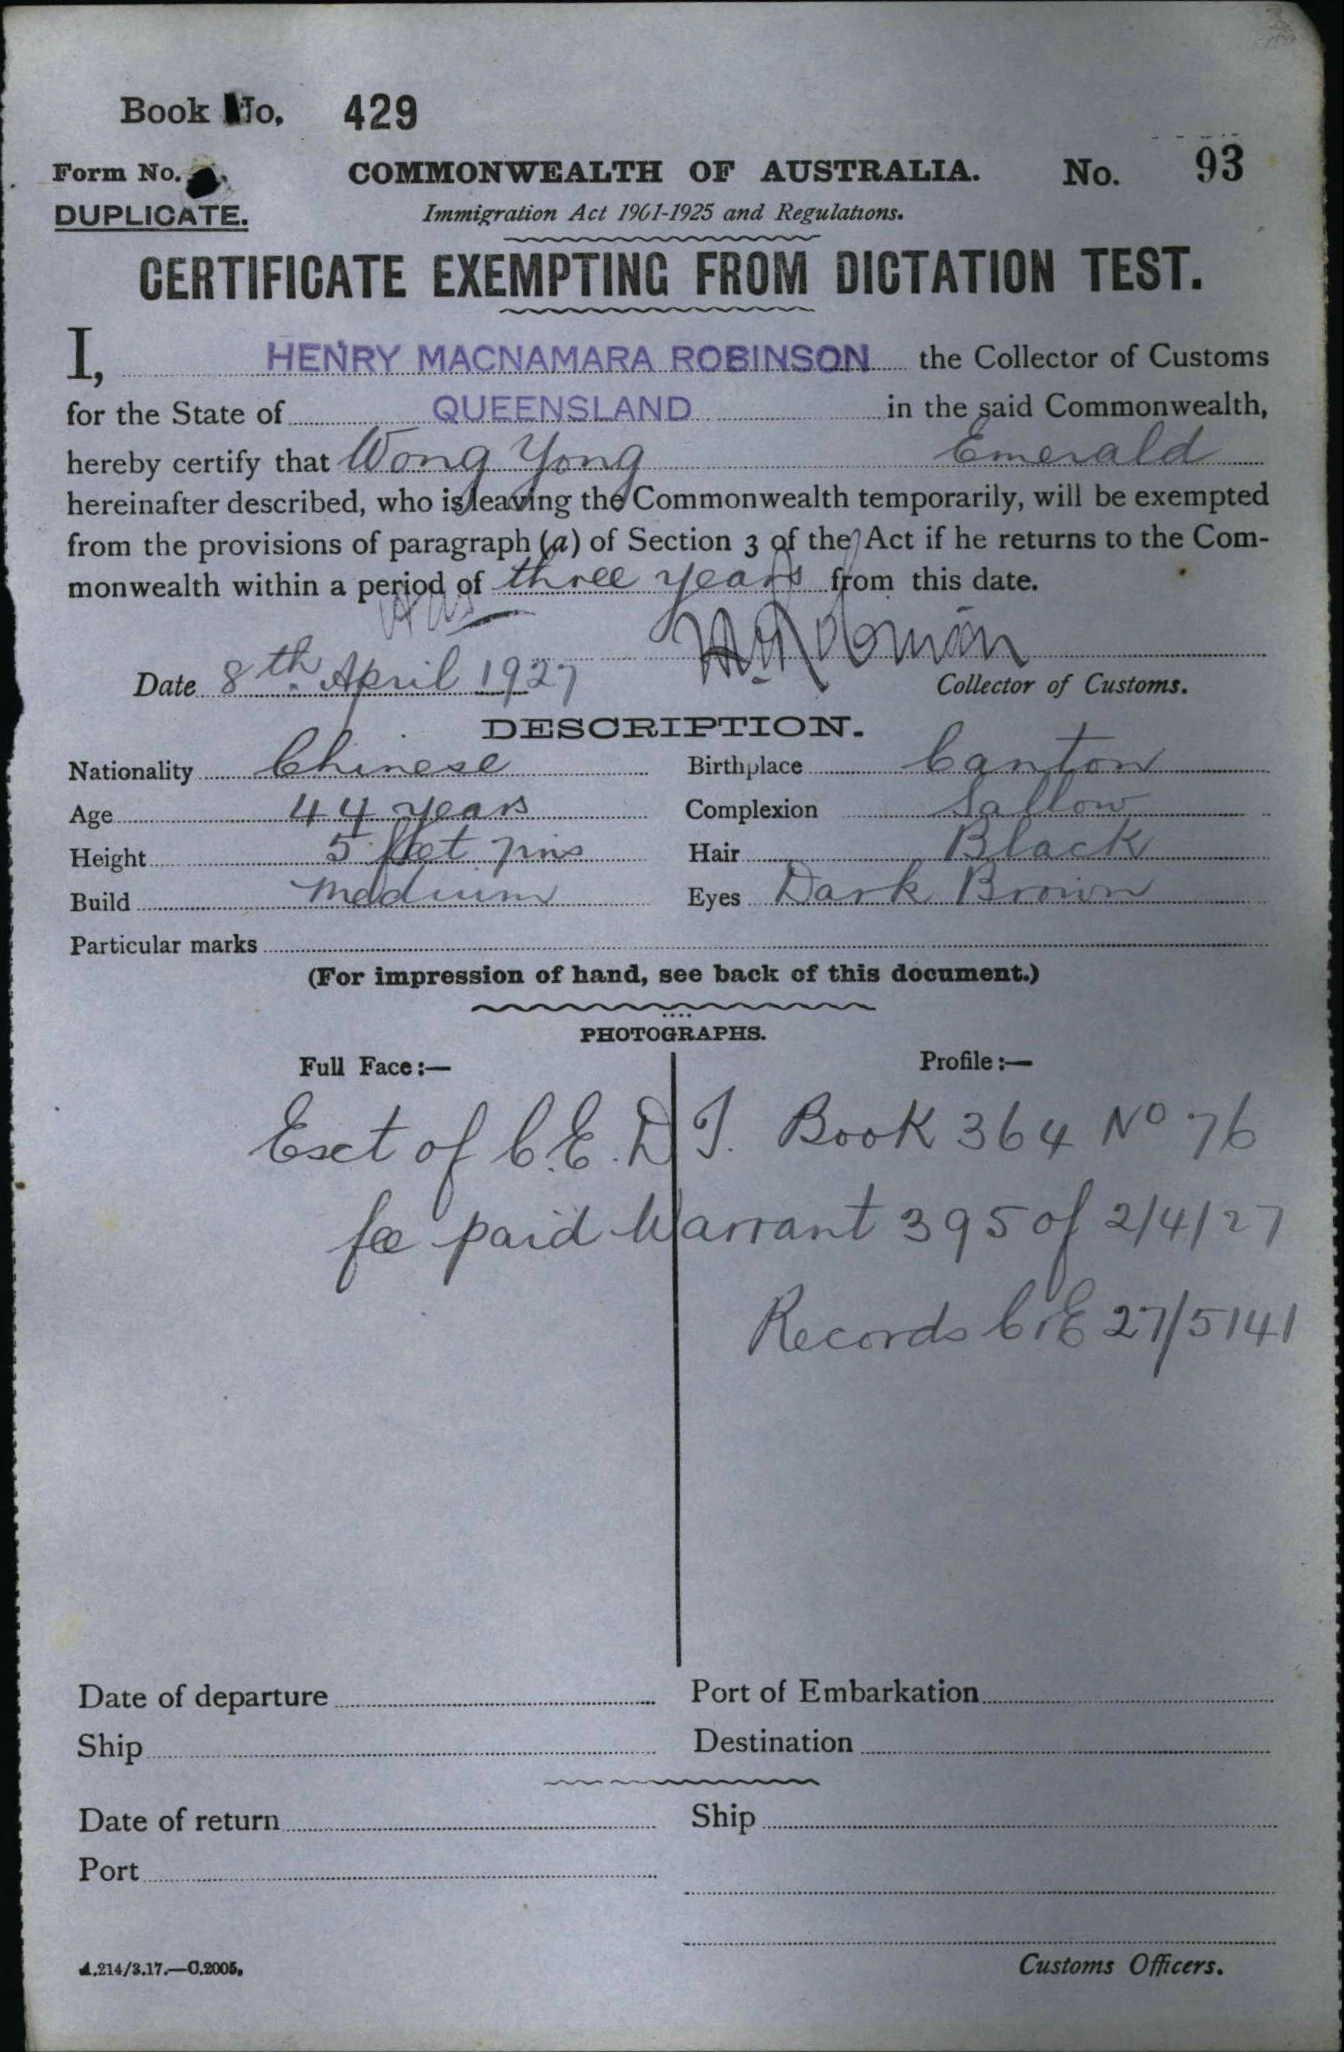 Book No. 429
Form No.
COMMONWEALTH OF AUSTRALIA. No. 93
DUPLICATE.
Immigration Act 1901-1925 and Regulations.
CERTIFICATE EXEMPTING FROM DICTATION TEST.
I, HENRY MACNAMARA ROBINSON the Collector of Customs
for the State of QUEENSLAND in the said Commonwealth,
hereby certify that Wong Yong Emerald
hereinafter described, who is leaving the Commonwealth temporarily, will be exempted
from the provisions of paragraph (a) of Section 3 of the Act if he returns to the Com-
monwealth within a period of three years from this date.
Date 8th April 1927 Collector of Customs.
DESCRIPTION.
Nationality Chinese Birthplace Canton
Age 44 years Complexion Sallow
Height 5 feet 7ins Hair Black
Build Medium Eyes Dark Brown
Particular marks
(For impression of hand, see back of this document.)
PHOTOGRAPHS.
Full Face:— Profile:—
Exct of C.E.D T. Book 364 No 76
fee paid Warrant 395 of 2/4/27
Records C&E 27/5141
Date of departure Port of Embarkation
Ship Destination
Date of return Ship
Port
A.214/3.17.—C.2005. Customs Officers.